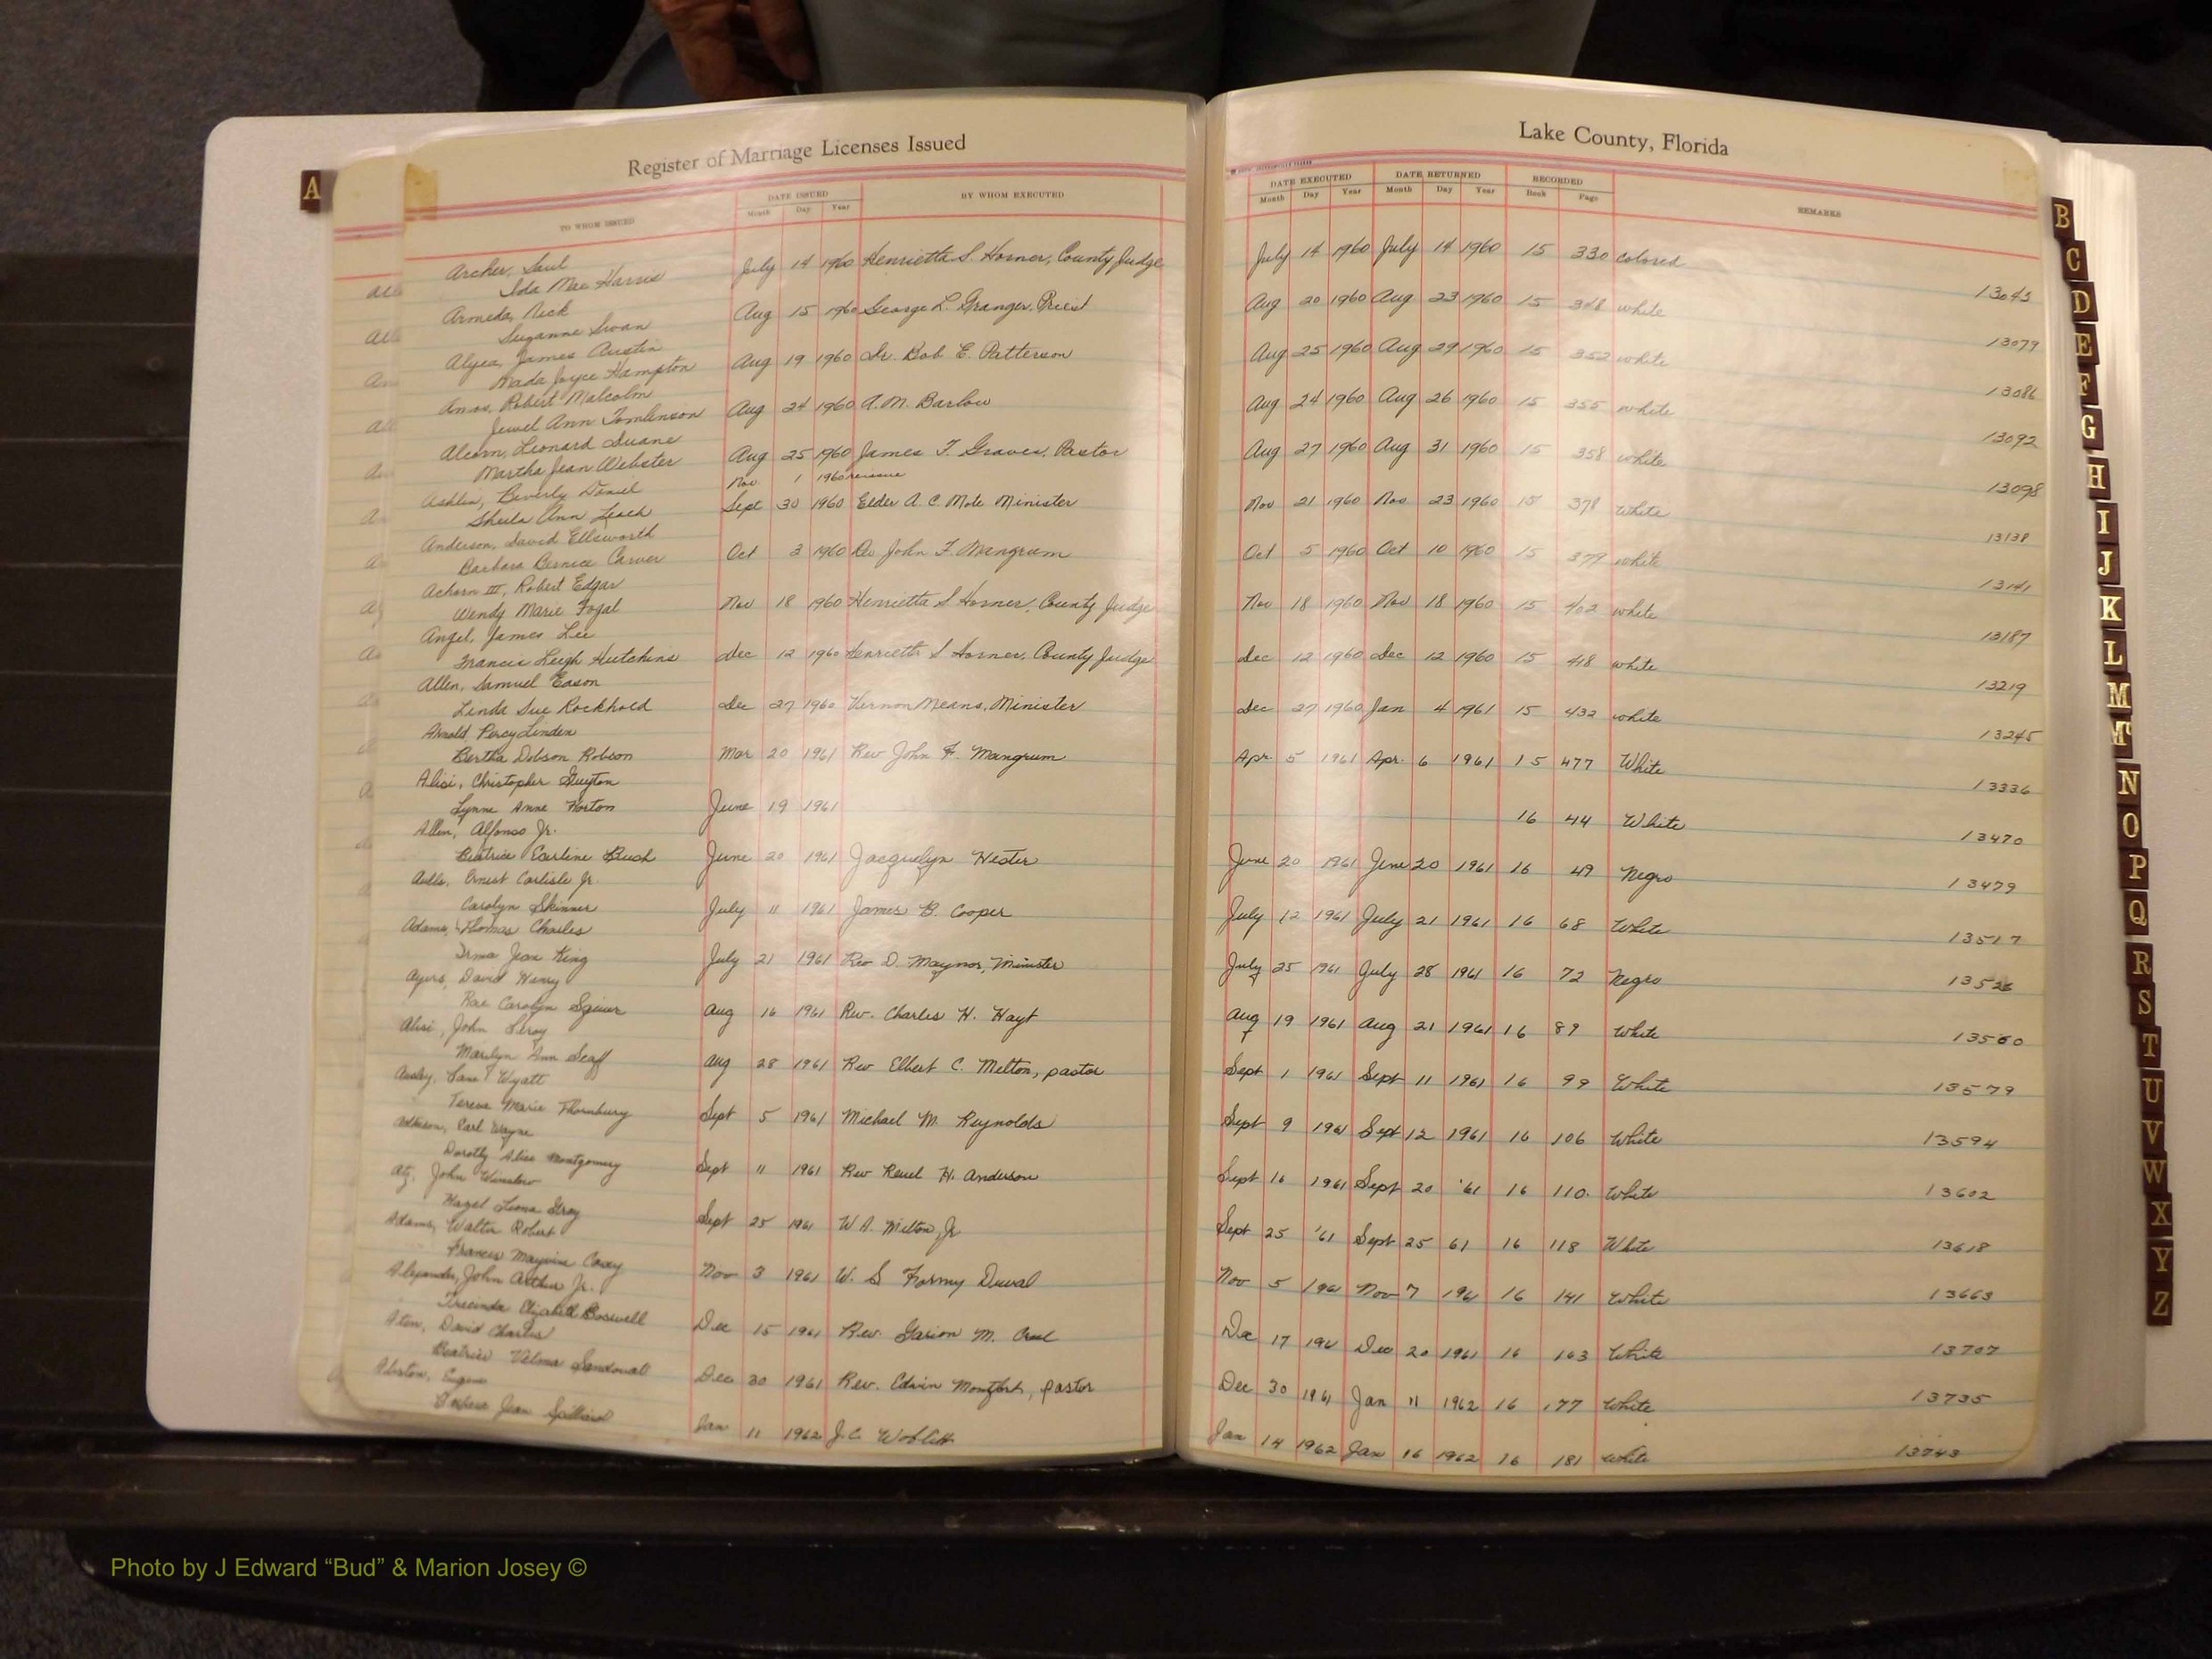 Register of Marriage Licenses Issued
Lake County, Florida
TO WHOM ISSUED
DATE ISSUED
Month Day Year
BY WHOM EXECUTED
DATE EXECUTED
Month Day Year
DATE RETURNED
Month Day Year
RECORDED
Book Page
REMARKS
Archer, Saul
Ida Mae Harris July 14 1960 Henrietta S. Horner, County Judge July 14 1960 July 14 1960 15 330 colored 13045
Armeda, Nick
Suzanne Swan Aug 15 1960 George L. Granger, Priest Aug 20 1960 Aug 23 1960 15 348 white 13079
Alyea, James Austin
Mada Joyce Hampton Aug 19 1960 Dr. Bob E. Patterson Aug 25 1960 Aug 29 1960 15 352 white 13086
Amos, Robert Malcolm
Jewel Ann Tomlinson Aug 24 1960 A. M. Barlow Aug 24 1960 Aug 26 1960 15 355 white 13092
Alcorn, Leonard Duane
Martha Jean Webster Aug 25 1960 James T. Graves, Pastor Aug 27 1960 Aug 31 1960 15 358 white 13098
Nov. 1 1960 reissue
Ashlin, Beverly Daniel
Sheila Ann Leach Sept 30 1960 Elder A. C. Mote Minister Nov 21 1960 Nov 23 1960 15 378 white 13138
Anderson, David Ellsworth
Barbara Bernice Carver Oct 3 1960 John F. Mangrum Oct 5 1960 Oct 10 1960 15 379 white 13141
Achorn III, Robert Edgar
Wendy Marie Fogal Nov 18 1960 Henrietta S Horner, County Judge Nov 18 1960 Nov 18 1960 15 402 white 13187
Angel, James Lee
Francis Leigh Hutchins Dec 12 1960 Henrietta S Horner, County Judge Dec 12 1960 Dec 12 1960 15 418 white 13219
Allen, Samuel Eason
Linda Sue Rockhold Dec 27 1960 Vernon Means, Minister Dec 27 1960 Jan 4 1961 15 432 white 13245
Arnold Percy Linden
Bertha Dobson Robson Mar 20 1961 Rev John F. Mangrum Apr. 5 1961 Apr. 6 1961 15 477 White 13336
Alisi, Christopher Guyton
Lynne Anne Horton June 19 1961 16 44 White 13470
Allen, Alfonso Jr.
Beatrice Earline Bush June 20 1961 Jacquelyn Hester June 20 1961 June 20 1961 16 49 Negro 13479
Aulls, Ernest Carlisle Jr.
Carolyn Skinner July 11 1961 James B. Cooper July 12 1961 July 21 1961 16 68 White 13517
Adams, Thomas Charles
Irma Jean King July 21 1961 Rev D. Maynor, Minister July 25 1961 July 28 1961 16 72 Negro 13526
Ayers, David Henry
Rae Carolyn Squier Aug 16 1961 Rev. Charles H. Hayt Aug 19 1961 Aug 21 1961 16 89 White 13560
Alisi, John Leroy
Marilyn Ann Scaff Aug 28 1961 Rev Elbert C. Melton, pastor Sept 1 1961 Sept 11 1961 16 99 White 13579
Wyatt
Teresa Marie Thornbury Sept 5 1961 Michael M. Reynolds Sept 9 1961 Sept 12 1961 16 106 White 13594
Adkison, Earl Wayne
Dorothy Alice Montgomery Sept 11 1961 Rev Reuel H. Anderson Sept 16 1961 Sept 20 '61 16 110 White 13602
Atz, John Winslow
Hazel Leona Gray Sept 25 1961 W A. Milton Jr Sept 25 '61 Sept 25 61 16 118 White 13618
Adams, Walter Robert
Frances Casey Nov 3 1961 W. S Formy Duval Nov 5 1961 Nov 7 1961 16 141 White 13663
Alexander, John Arthur Jr.
Elizabeth Boswell Dec 15 1961 Rev. Garion M. Dec 17 1961 Dec 20 1961 16 163 White 13707
Aten, David Charles
Beatrice Velma Sandoval Dec 30 1961 Rev. Edwin Montfort, pastor Dec 30 1961 Jan 11 1962 16 177 White 13735
Eugene
Jean Jan 11 1962 J. C. Jan 14 1962 Jan 16 1962 16 181 White 13743
A
B
C
D
E
F
G
H
I
J
K
L
M
Mc
N
O
P
Q
R
S
T
U
V
W
X
Y
Z
Photo by J Edward “Bud” & Marion Josey ©